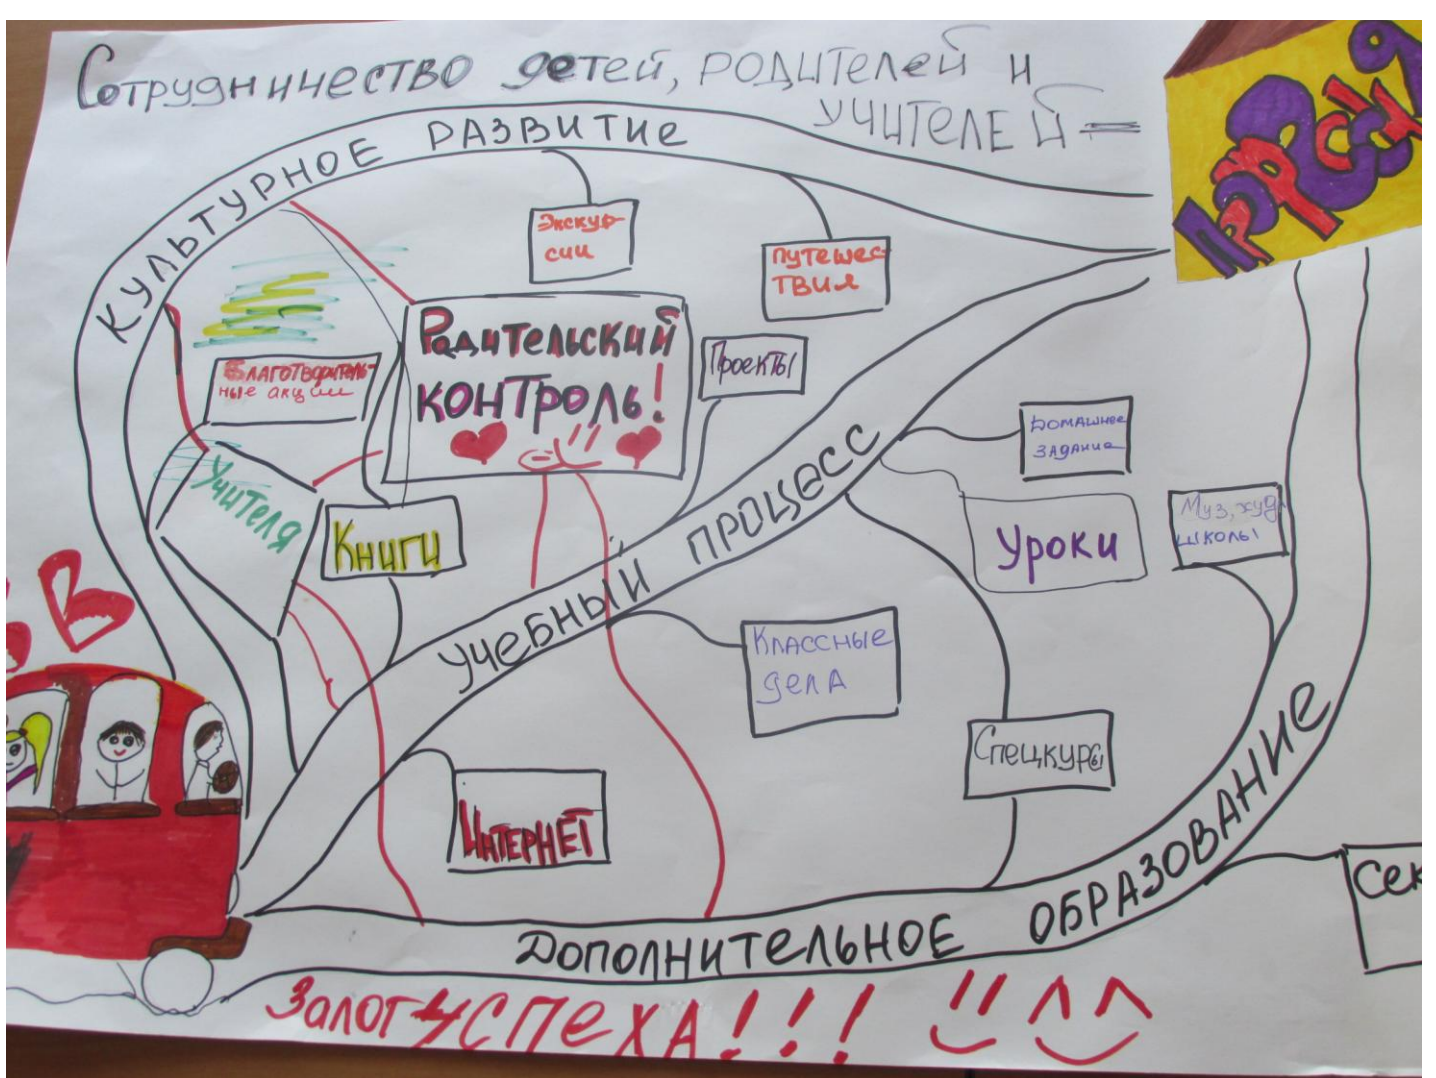 Сотрудничество детей, родителей и
учителей =
Профессия
Культурное развитие
Экскур-
сии
Путешес-
твия
Благотворитель-
ные акции
Родительский
контроль!
Проекты
Учителя
Книги
Учебный процесс
Домашнее
задание
Уроки
Муз, худ
школы
Классные
дела
Спецкурсы
Интернет
Дополнительное образование
Сек
В
Залог успеха!!!